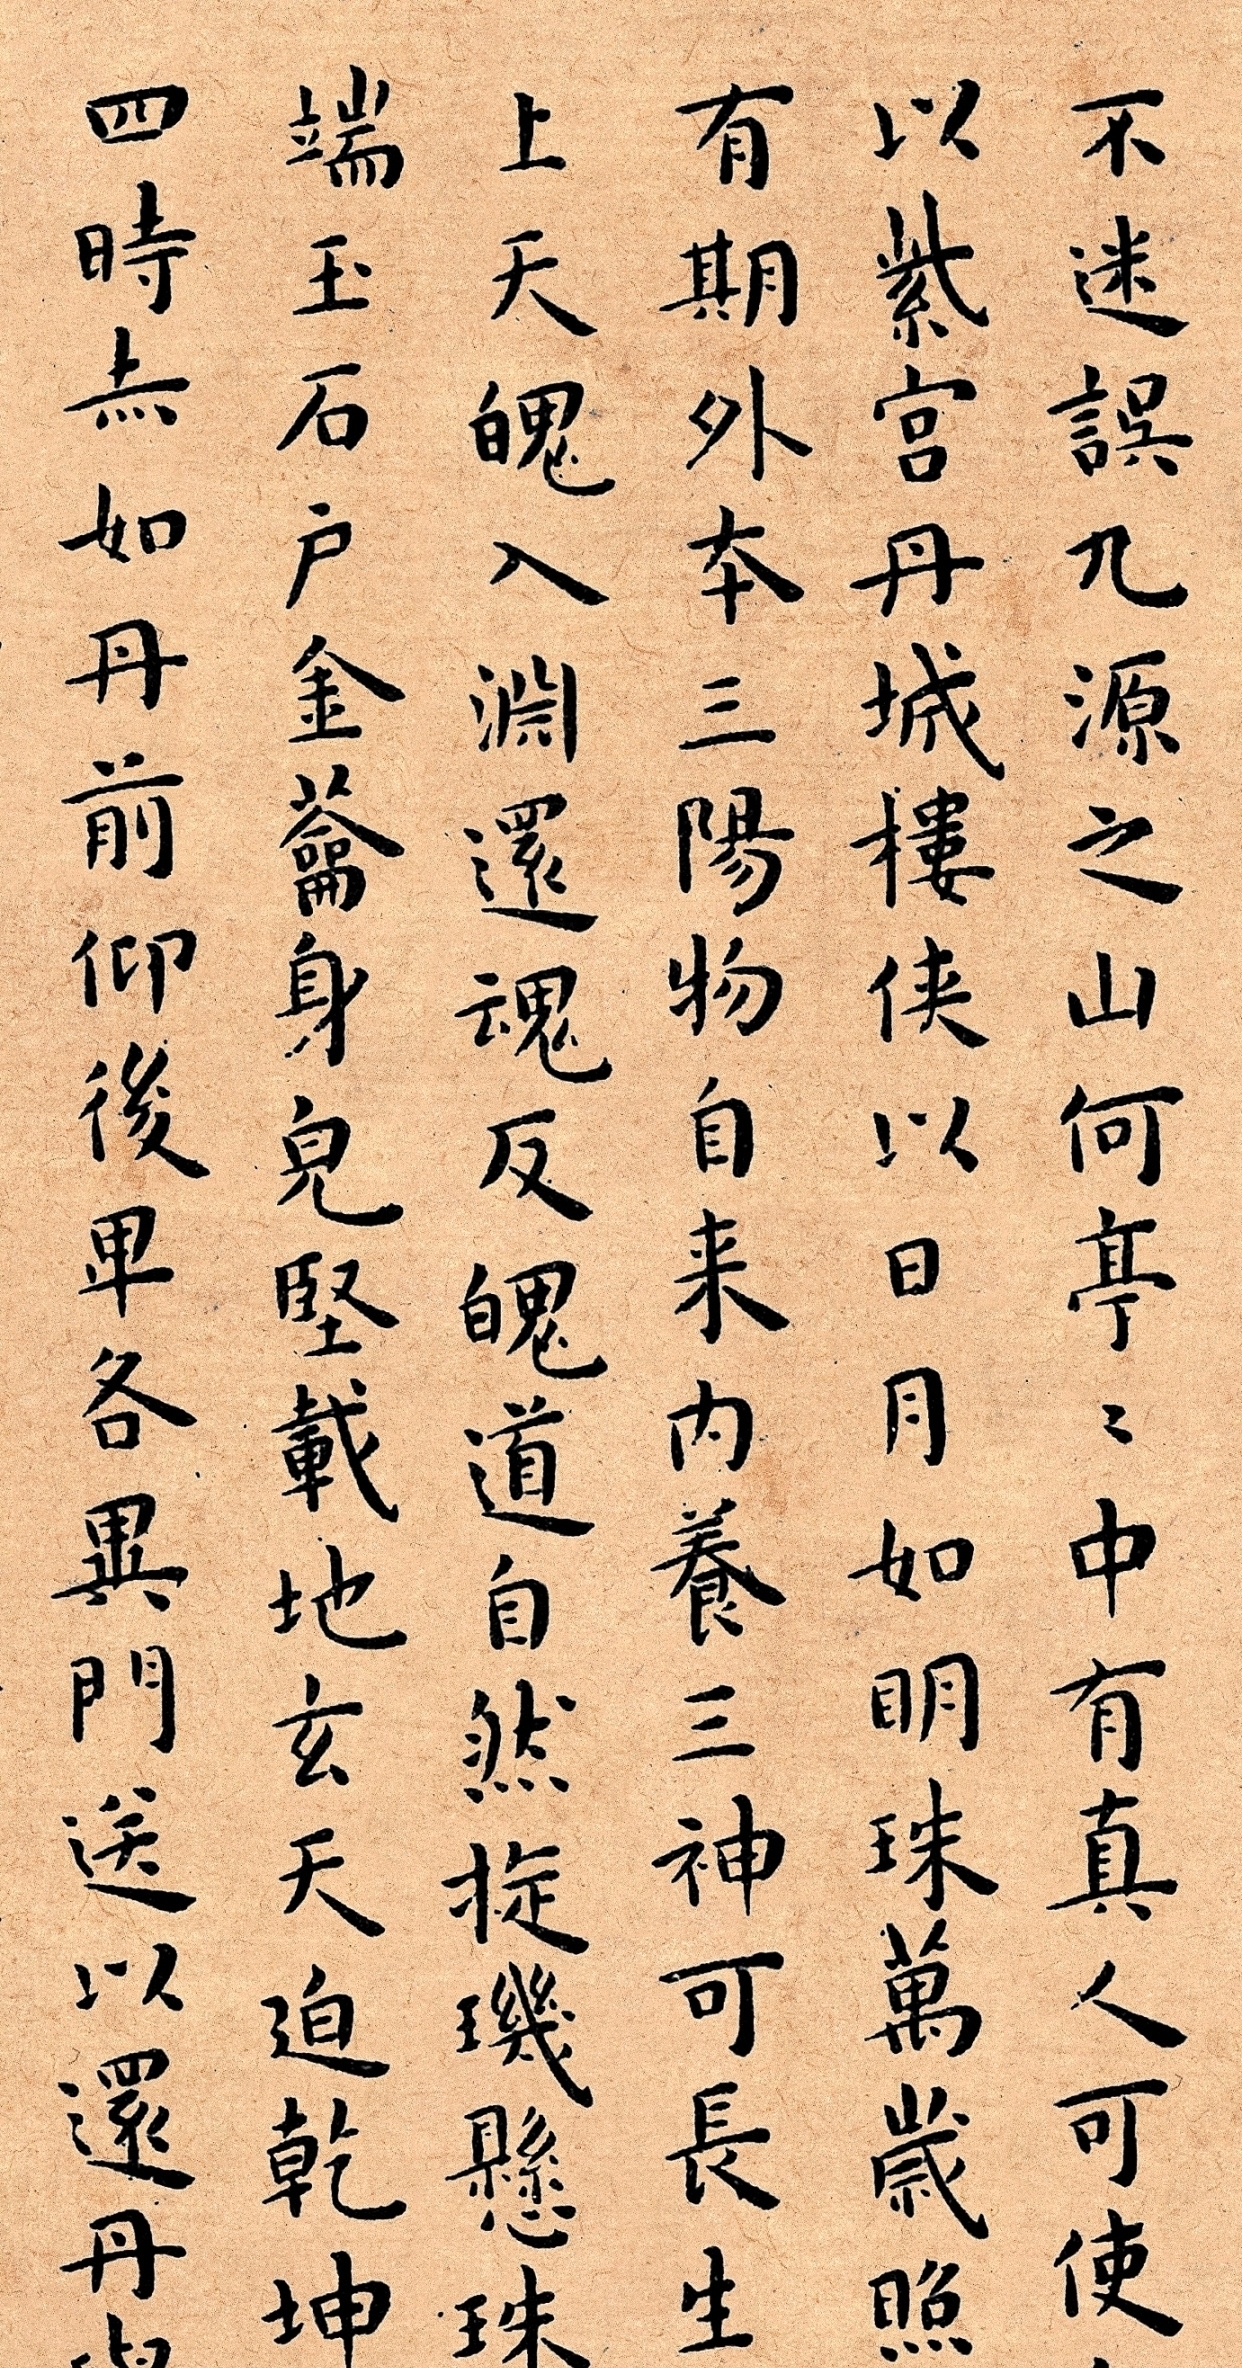 不迷誤九源之山何亭〻中有真人可使
以紫宫丹城樓俠以日月如明珠萬歲照
有期外本三陽物自来内養三神可長生
上天魄入淵還魂反魄道自然旋璣懸珠
端玉石户金蘥身皃堅載地玄天迫乾坤
四時赤如丹前仰後卑各異門送以還丹